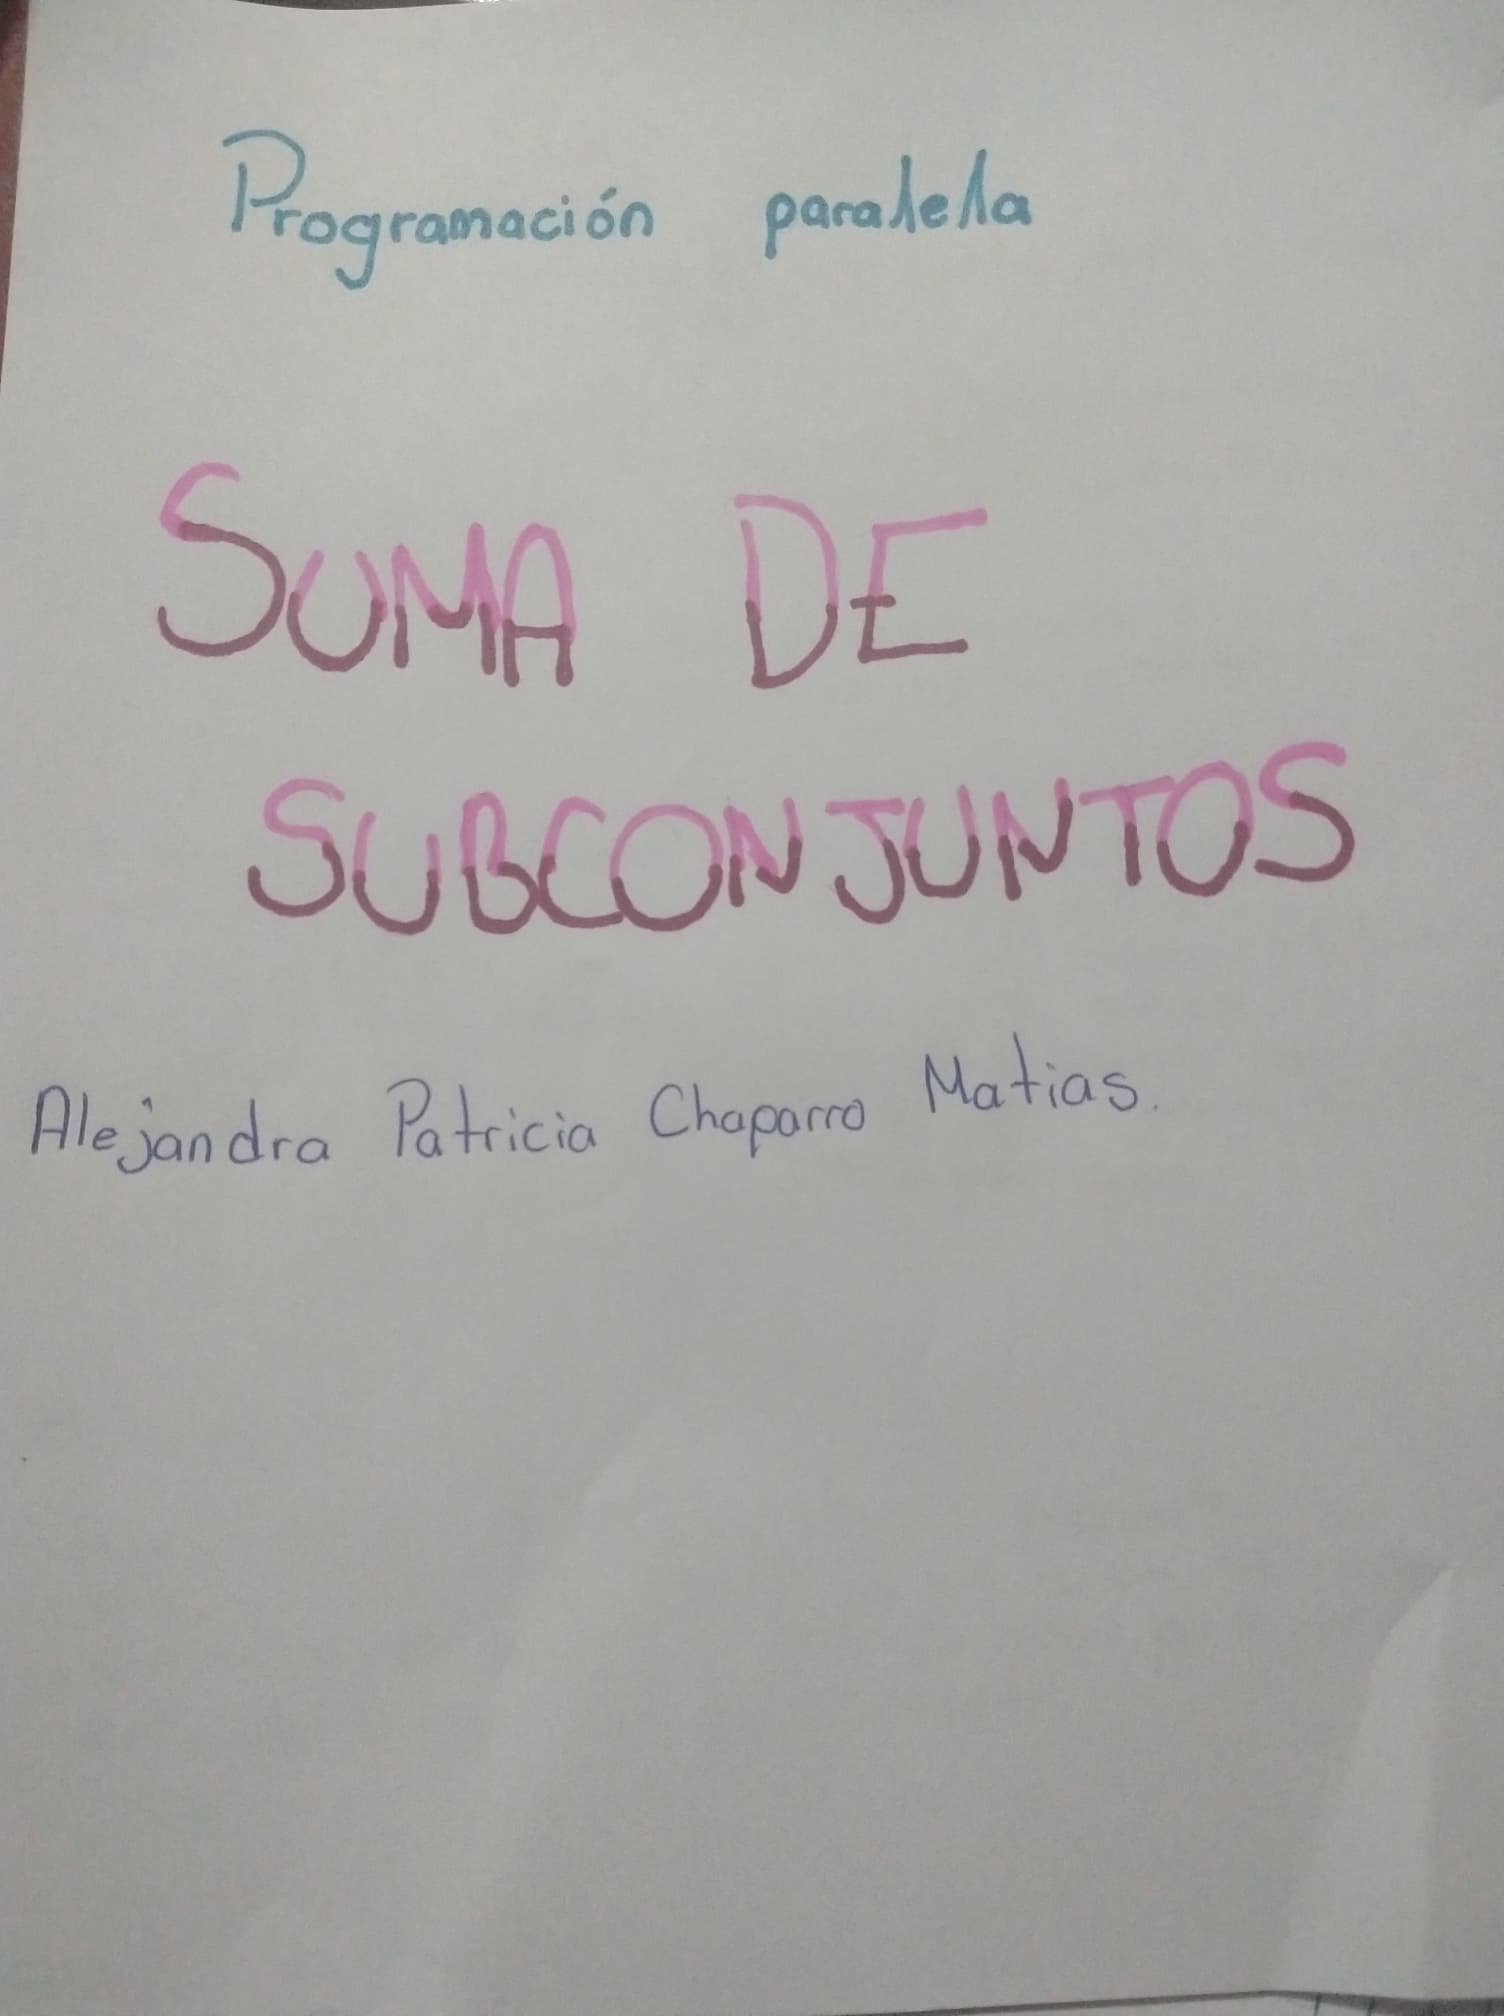 Programación paralela
SUMA DE
SUBCONJUNTOS
Alejandra Patricia Chaparro Matias.